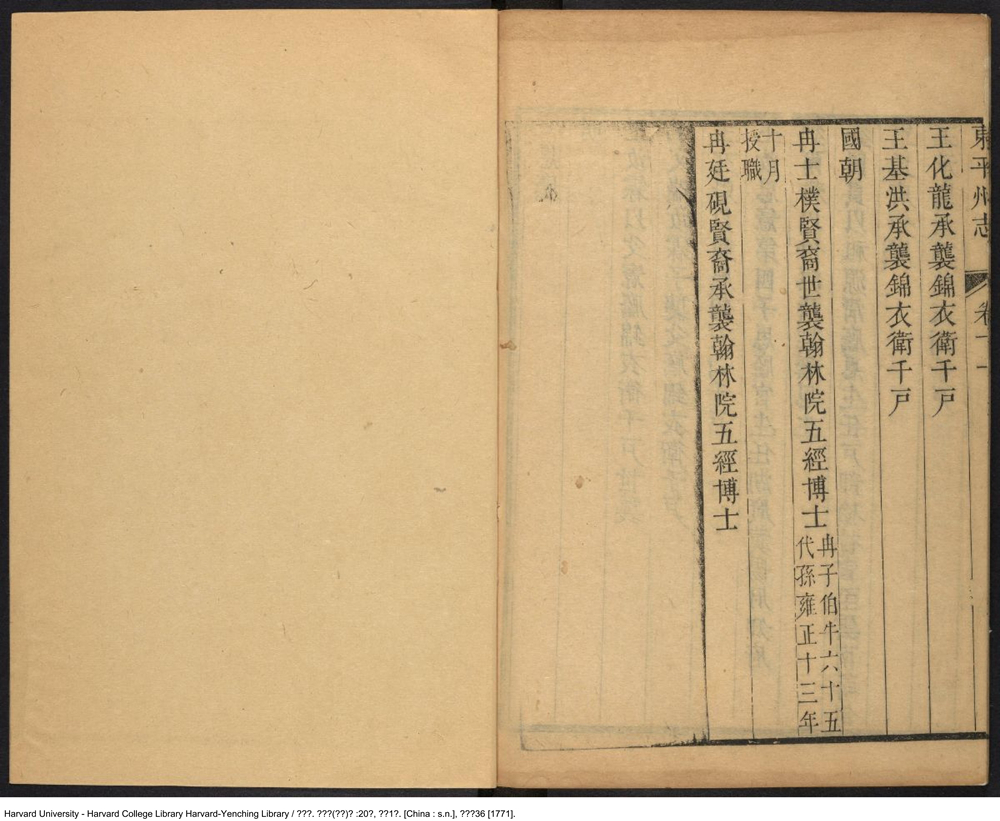 東平州志 卷十一
王化龍承襲錦衣衛千戶
王基洪承襲錦衣衛千戶
國朝
冉士樸賢裔世襲翰林院五經博士冉子伯牛六十五
代孫雍正十三年
十月
授職
冉廷硯賢裔承襲翰林院五經博士
Harvard University - Harvard College Library Harvard-Yenching Library / ???. ???(??)? :20?, ??1?. [China : s.n.], ???36 [1771].